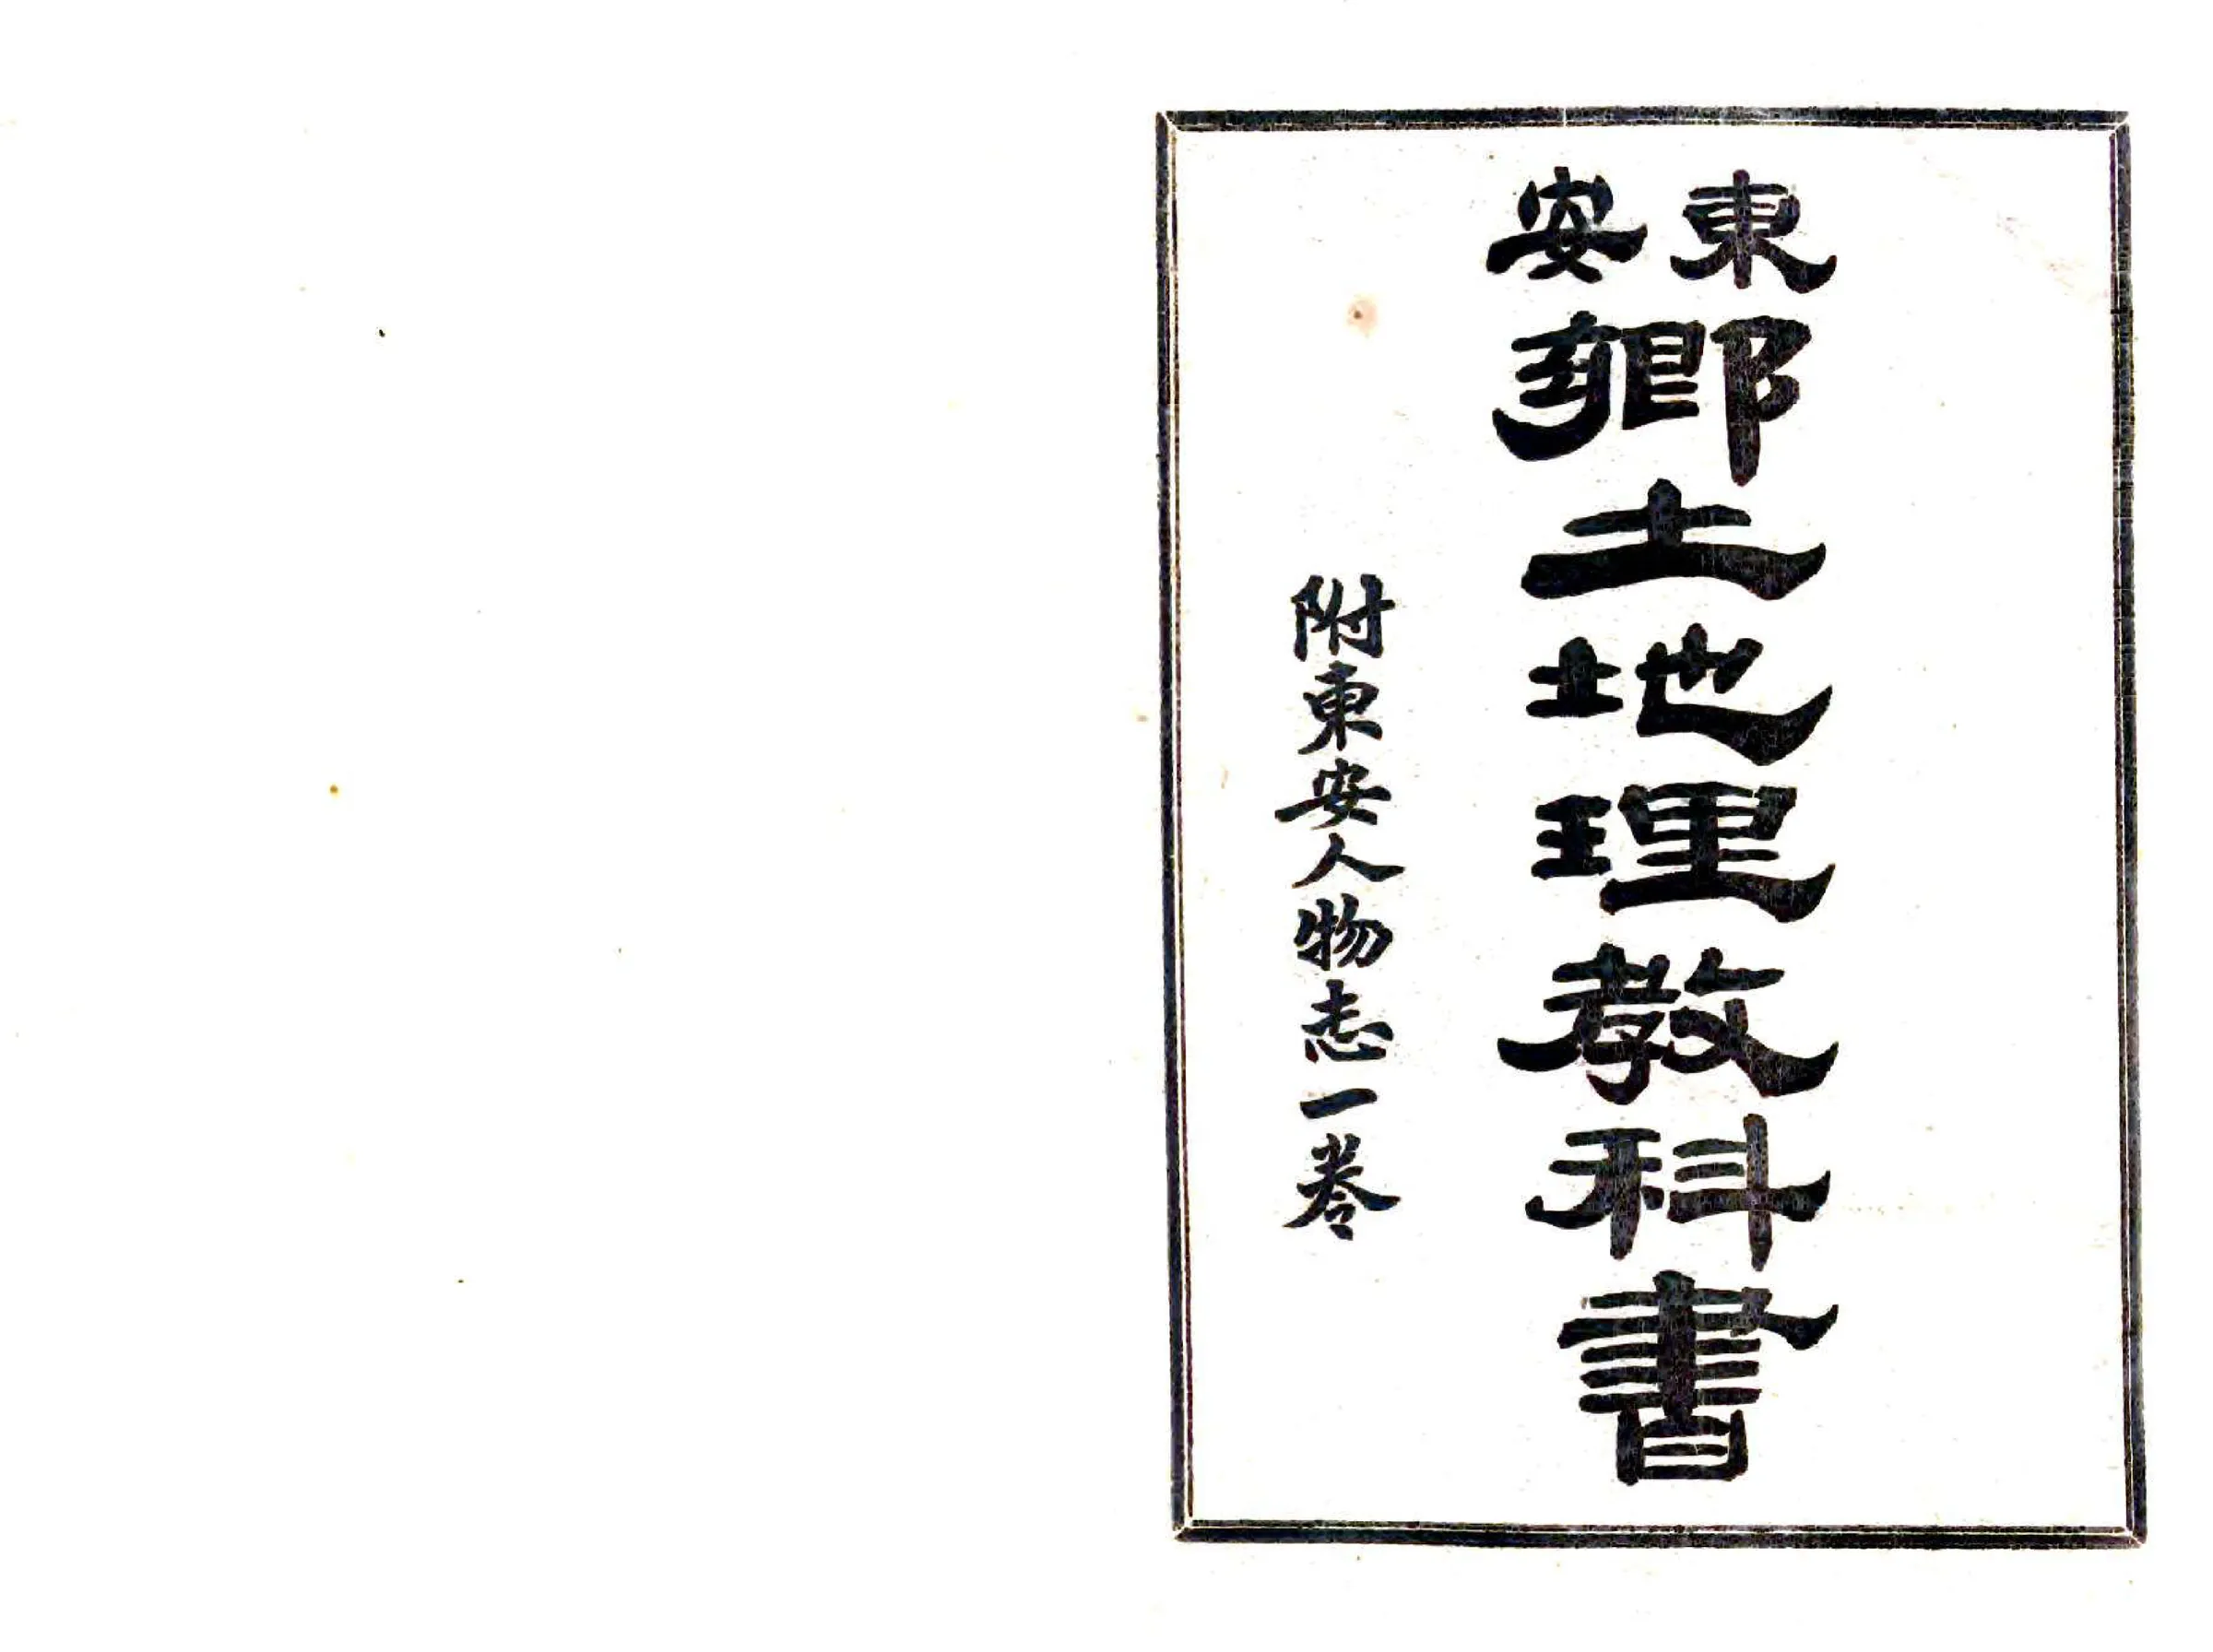 東安鄉土地理教科書
附東安人物志一卷